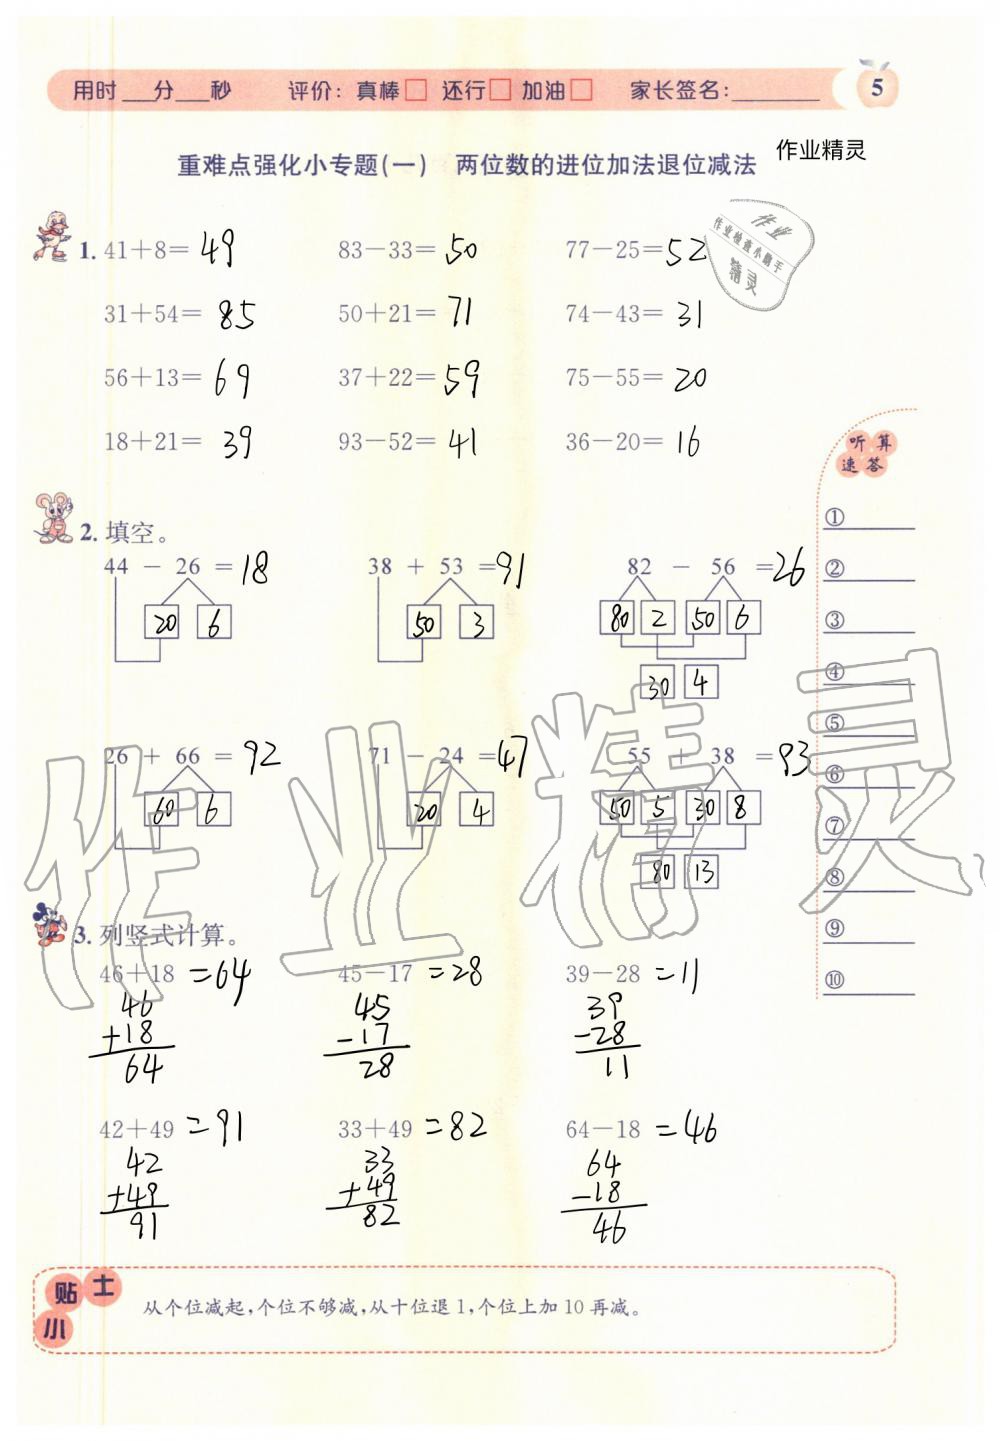 用时___分___秒 评价：真棒□ 还行□ 加油□ 家长签名：________ 5
重难点强化小专题(一) 两位数的进位加法退位减法
作业精灵
作业
作业检查小助手
精灵
1. 41+8= 49 83-33= 50 77-25= 52
31+54= 85 50+21= 71 74-43= 31
56+13= 69 37+22= 59 75-55= 20
18+21= 39 93-52= 41 36-20= 16
听算
速答
①
②
③
④
⑤
⑥
⑦
⑧
⑨
⑩
2. 填空。
44 - 26 =18 38 + 53 =91 82 - 56 =26
20 6 50 3 80 2 50 6
30 4
26 + 66 =92 71 - 24 =47 55 + 38 =93
60 6 20 4 50 5 30 8
80 13
作业精灵
3. 列竖式计算。
46+18 =64 45-17 =28 39-28 =11
46 45 39
+18 -17 -28
64 28 11
42+49 =91 33+49 =82 64-18 =46
42 33 64
+49 +49 -18
91 82 46
小贴士
从个位减起，个位不够减，从十位退1，个位上加10再减。